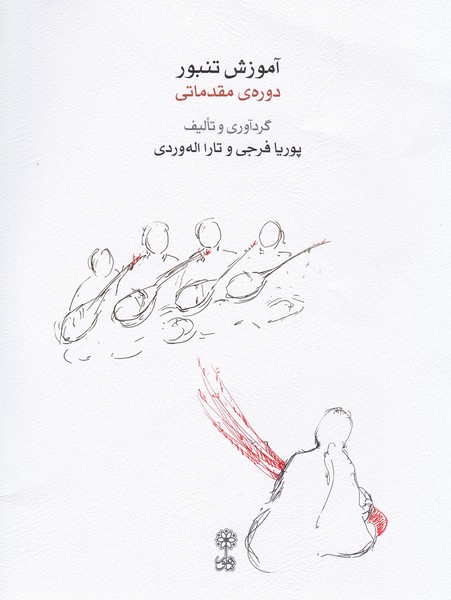 آموزش تنبور
دوره‌ی مقدماتی
گردآوری و تألیف
پوریا فرجی و تارا اله‌وردی